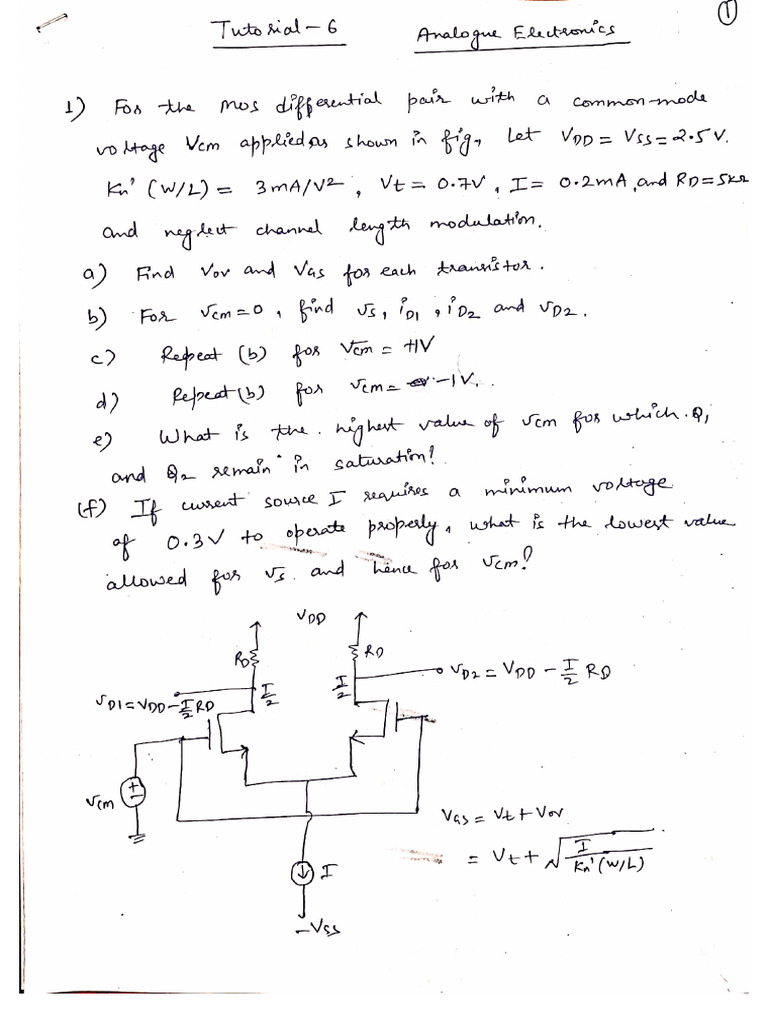 ①
Tutorial-6 Analogue Electronics
1) For the MOS differential pair with a common-mode
voltage Vcm applied as shown in fig, Let VDD = VSS = 2.5V.
Kn' (W/L) = 3mA/V², Vt = 0.7V, I = 0.2mA, and RD = 5kΩ
and neglect channel length modulation.
a) Find Vov and VGS for each transistor.
b) For vcm=0, find vs, iD1, iD2 and vD2.
c) Repeat (b) for Vcm = +1V
d) Repeat (b) for vcm = -1V.
e) What is the highest value of vcm for which Q1
and Q2 remain in saturation?
(f) If current source I requires a minimum voltage
of 0.3V to operate properly, what is the lowest value
allowed for vs and hence for vcm?
VDD
RD RD
I/2 I/2
vD2 = VDD - I/2 RD
vD1 = VDD - I/2 RD
vcm
I
-VSS
VGS = Vt + Vov
= Vt + √(I / Kn' (W/L))